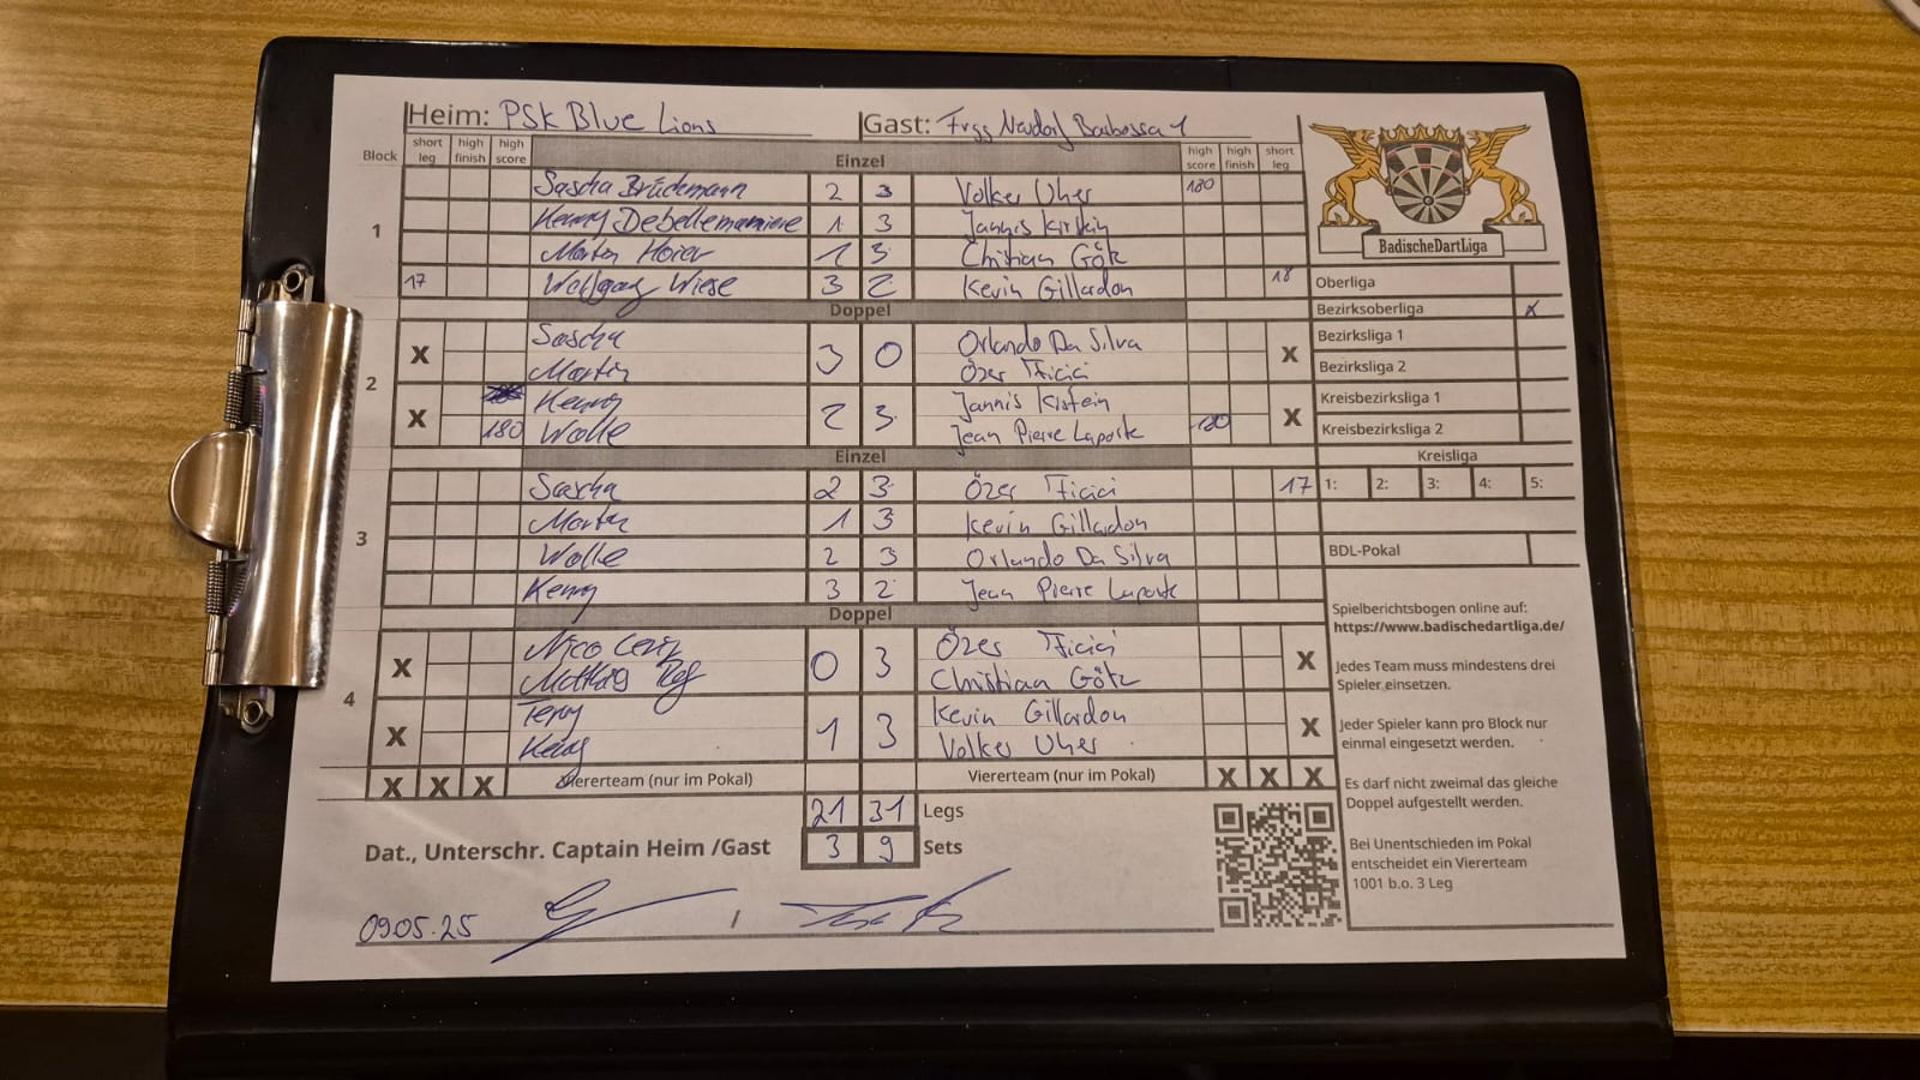 Heim: PSK Blue Lions Gast: Frgg Neudorf Barbossa 1
Block short leg high finish high score Einzel high score high finish short leg
1
Sascha Brückmann 2 3 Volker Uher 180
Kenny Debellemaniere 1 3 Jannis Kirstein
Martin Hoier 1 3 Christian Götz
17 Wolfgang Wiese 3 2 Kevin Gillardon 18
Doppel
2
X Sascha 3 0 Orlando Da Silva X
Martin Özer Ficici
X Kenny 2 3 Jannis Kirstein X
180 Wolle Jean Pierre Laporte 180
Einzel
3
Sascha 2 3 Özer Ficici 17
Martin 1 3 Kevin Gillardon
Wolle 2 3 Orlando Da Silva
Kenny 3 2 Jean Pierre Laporte
Doppel
4
X Nico 0 3 Özer Ficici X
Christian Götz
X Terry 1 3 Kevin Gillardon X
Kenny Volker Uher
X X X Viererteam (nur im Pokal) Viererteam (nur im Pokal) X X X
21 31 Legs
Dat., Unterschr. Captain Heim /Gast 3 9 Sets
09.05.25 /
BadischeDartLiga
Oberliga
Bezirksoberliga X
Bezirksliga 1
Bezirksliga 2
Kreisbezirksliga 1
Kreisbezirksliga 2
Kreisliga
1: 2: 3: 4: 5:
BDL-Pokal
Spielberichtsbogen online auf:
https://www.badischedartliga.de/
Jedes Team muss mindestens drei
Spieler einsetzen.
Jeder Spieler kann pro Block nur
einmal eingesetzt werden.
Es darf nicht zweimal das gleiche
Doppel aufgestellt werden.
Bei Unentschieden im Pokal
entscheidet ein Viererteam
1001 b.o. 3 Leg